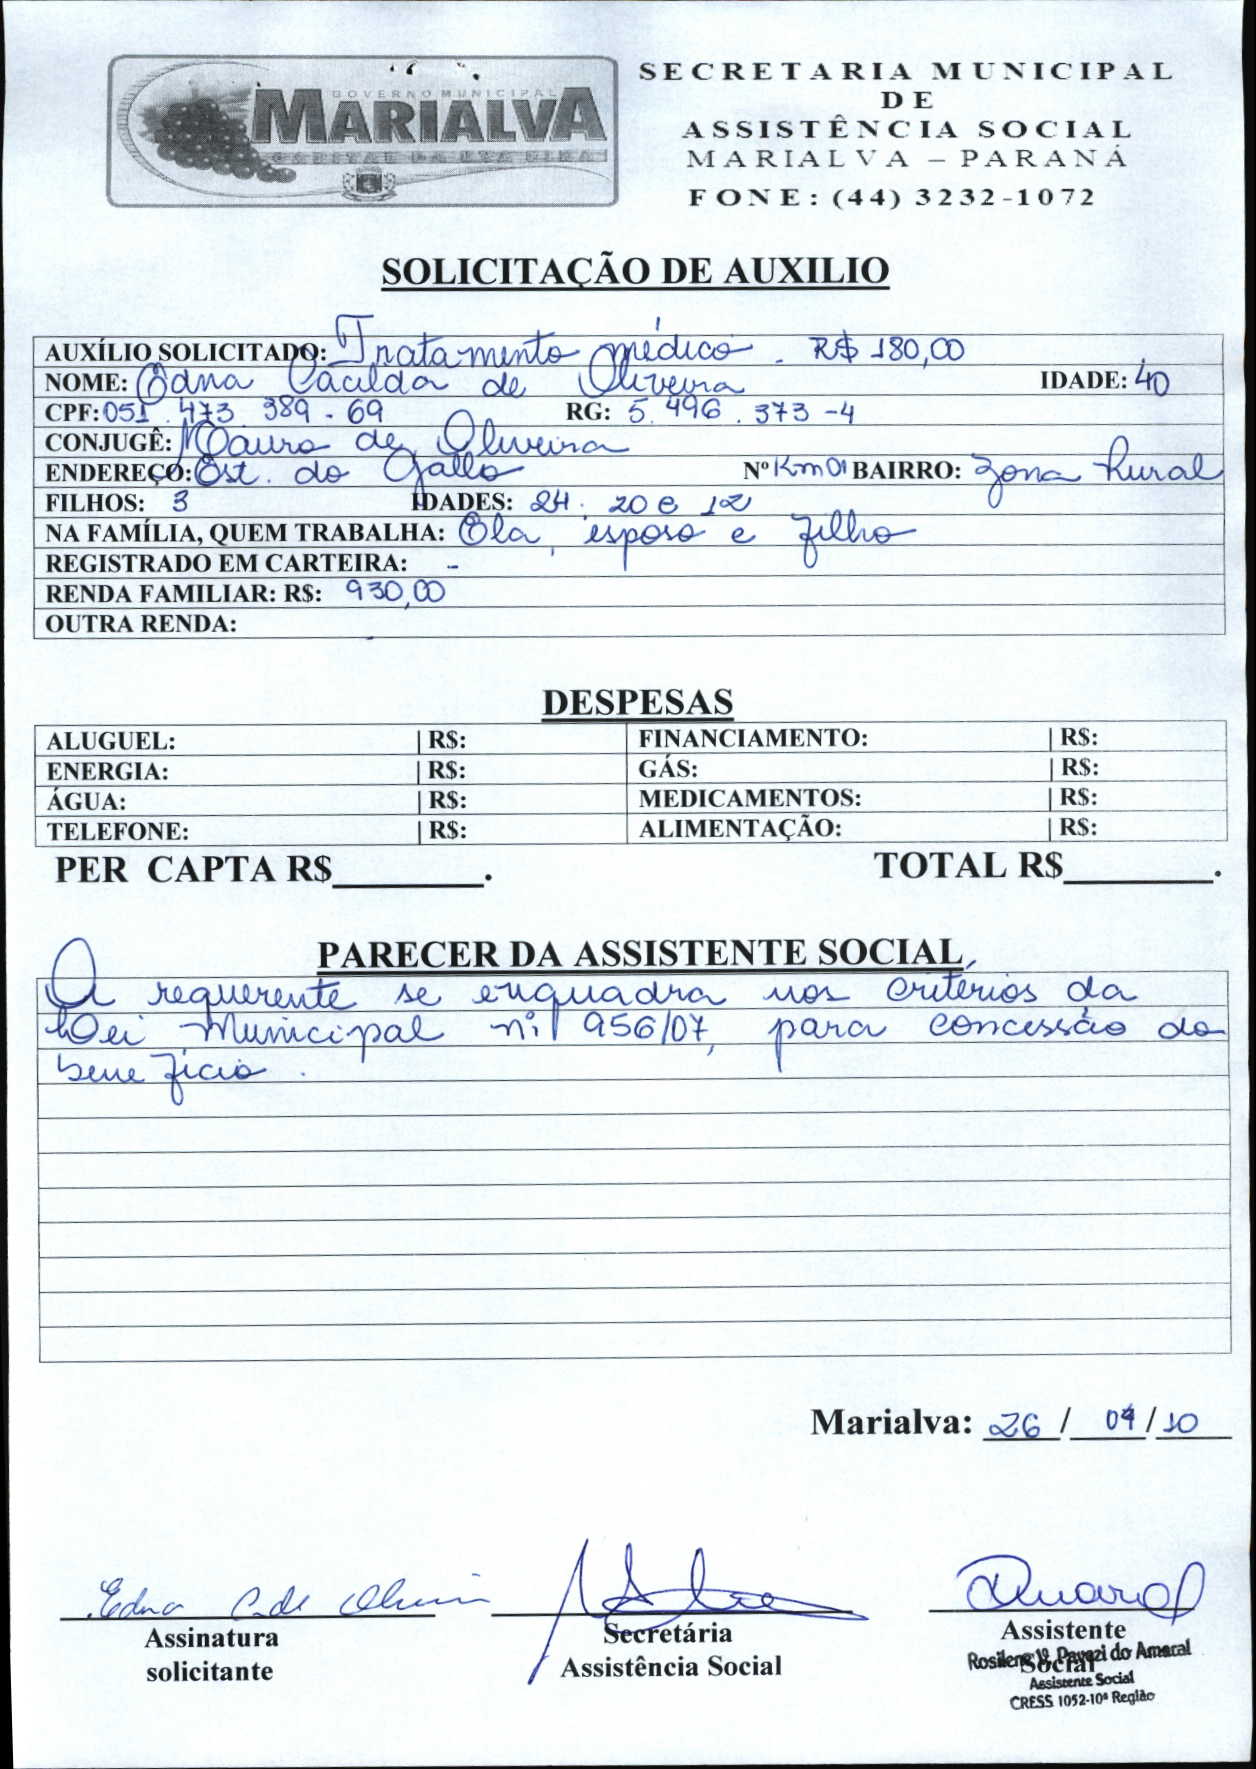 GOVERNO MUNICIPAL
MARIALVA
CAPITAL DA UVA FINA
SECRETARIA MUNICIPAL
DE
ASSISTÊNCIA SOCIAL
MARIALVA – PARANÁ
FONE: (44) 3232-1072
SOLICITAÇÃO DE AUXILIO
AUXÍLIO SOLICITADO: Tratamento médico. R$ 180,00
NOME: Edna Cacilda de Oliveira IDADE: 40
CPF: 051.473.389-69 RG: 5.496.373-4
CONJUGÊ: Mauro de Oliveira
ENDEREÇO: Est. do Gallo Nº Km 01 BAIRRO: Zona Rural
FILHOS: 3 IDADES: 24, 20 e 12
NA FAMÍLIA, QUEM TRABALHA: Ela, esposo e filho
REGISTRADO EM CARTEIRA: -
RENDA FAMILIAR: R$: 930,00
OUTRA RENDA: -
DESPESAS
ALUGUEL: | R$: FINANCIAMENTO: | R$:
ENERGIA: | R$: GÁS: | R$:
ÁGUA: | R$: MEDICAMENTOS: | R$:
TELEFONE: | R$: ALIMENTAÇÃO: | R$:
PER CAPTA R$________. TOTAL R$________.
PARECER DA ASSISTENTE SOCIAL
A requerente se enquadra nos critérios da
Lei Municipal nº 956/07, para concessão do
benefício.
Marialva: 26 / 04 / 10
Edna C. de Oliveira
Assinatura
solicitante
Secretária
Assistência Social
Assistente
Social
Rosilene Pavezi do Amaral
Assistente Social
CRESS 1052-10ª Região